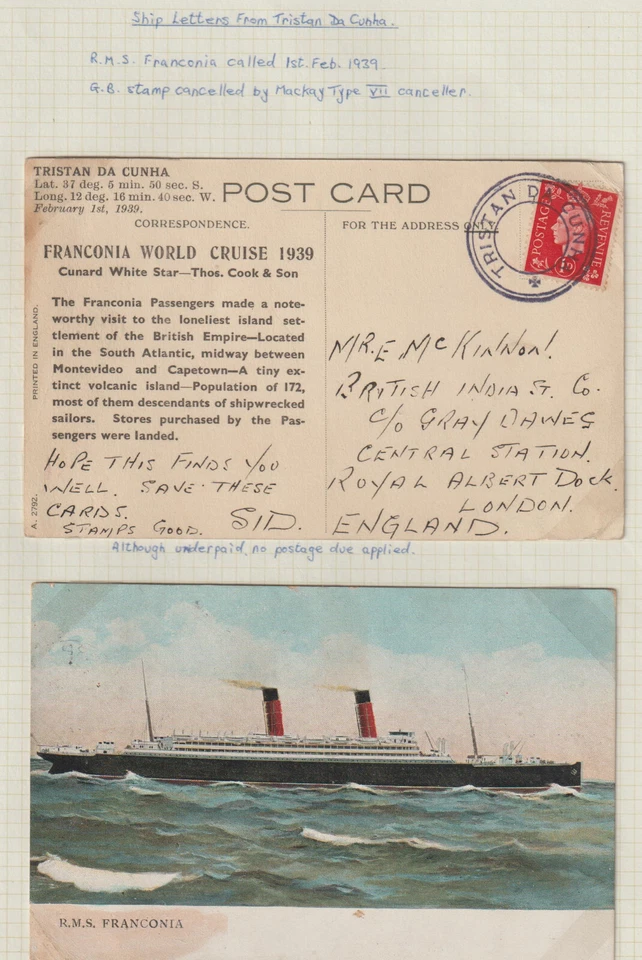 Ship Letters From Tristan Da Cunha.
R.M.S. Franconia called 1st. Feb. 1939.
G.B. stamp cancelled by Mackay Type VII canceller.
TRISTAN DA CUNHA
Lat. 37 deg. 5 min. 50 sec. S.
Long. 12 deg. 16 min. 40 sec. W.
February 1st, 1939.
POST CARD
CORRESPONDENCE.
FOR THE ADDRESS ONLY.
TRISTAN DA CUNHA
POSTAGE
REVENUE
1D
FRANCONIA WORLD CRUISE 1939
Cunard White Star—Thos. Cook & Son
The Franconia Passengers made a note-
worthy visit to the loneliest island set-
tlement of the British Empire—Located
in the South Atlantic, midway between
Montevideo and Capetown—A tiny ex-
tinct volcanic island—Population of 172,
most of them descendants of shipwrecked
sailors. Stores purchased by the Pas-
sengers were landed.
PRINTED IN ENGLAND.
A. 2792.
HOPE THIS FINDS YOU
WELL. SAVE THESE
CARDS.
STAMPS GOOD. SID.
MR. E. McKINNON.
BRITISH INDIA ST. Co.
C/O GRAY DAWES
CENTRAL STATION.
ROYAL ALBERT DOCK.
LONDON.
ENGLAND.
Although underpaid, no postage due applied.
R.M.S. FRANCONIA